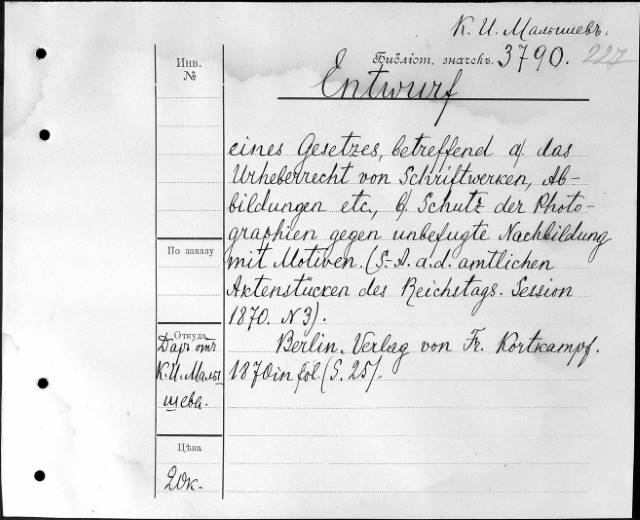 К. И. Малышевъ.
Инв.
№
Библіот. значекъ. 3790. 227
Entwurf
eines Gesetzes, betreffend a/. das
Urheberrecht von Schriftwerken, Ab-
bildungen etc., b/. Schutz der Photo-
graphien gegen unbefugte Nachbildung
mit Motiven. (S.-A. a. d. amtlichen
Aktenstücken des Reichstags. Session
1870. N 3).
Berlin. Verlag von Fr. Kortkampf.
1870 in fol. (S. 25).
По заказу
Откуда
Даръ отъ
К. И. Малы
шева.
Цѣна
20к.